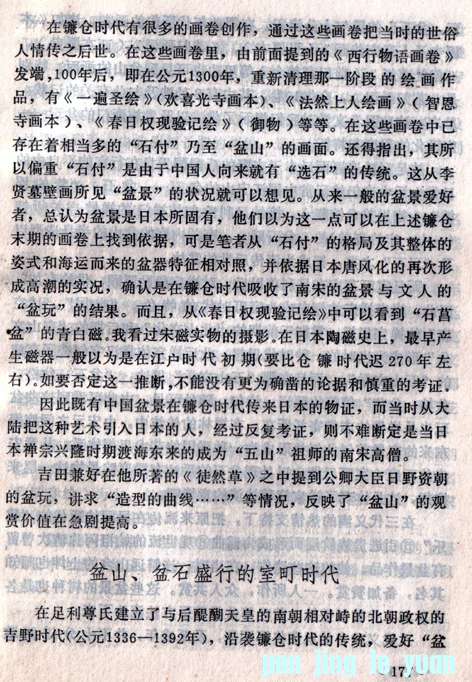 在镰仓时代有很多的画卷创作，通过这些画卷把当时的世俗
人情传之后世。在这些画卷里，由前面提到的《西行物语画卷》
发端，100年后，即在公元1300年，重新清理那一阶段的绘画作
品，有《一遍圣绘》(欢喜光寺画本)、《法然上人绘画》(智恩
寺画本)、《春日权现验记绘》(御物)等等。在这些画卷中已
存在着相当多的“石付”乃至“盆山”的画面。还得指出，其所
以偏重“石付”是由于中国人向来就有“选石”的传统。这从李
贤墓壁画所见“盆景”的状况就可以想见。从来一般的盆景爱好
者，总认为盆景是日本所固有，他们以为这一点可以在上述镰仓
末期的画卷上找到依据，可是笔者从“石付”的格局及其整体的
姿式和海运而来的盆器特征相对照，并依据日本唐风化的再次形
成高潮的实况，确认是在镰仓时代吸收了南宋的盆景与文人的
“盆玩”的结果。而且，从《春日权现验记绘》中可以看到“石菖
盆”的青白磁。我看过宋磁实物的摄影。在日本陶磁史上，最早产
生磁器一般以为是在江户时代初期(要比仓镰时代迟270年左
右)。如要否定这一推断，不能没有更为确凿的论据和慎重的考证。
因此既有中国盆景在镰仓时代传来日本的物证，而当时从大
陆把这种艺术引入日本的人，经过反复考证，则不难断定是当日
本禅宗兴隆时期渡海东来的成为“五山”祖师的南宋高僧。
吉田兼好在他所著的《徒然草》之中提到公卿大臣日野资朝
的盆玩，讲求“造型的曲线……”等情况，反映了“盆山”的观
赏价值在急剧提高。
盆山、盆石盛行的室町时代
在足利尊氏建立了与后醍醐天皇的南朝相对峙的北朝政权的
吉野时代(公元1336—1392年)，沿袭镰仓时代的传统，爱好“盆
·17·
pen jing le yuan